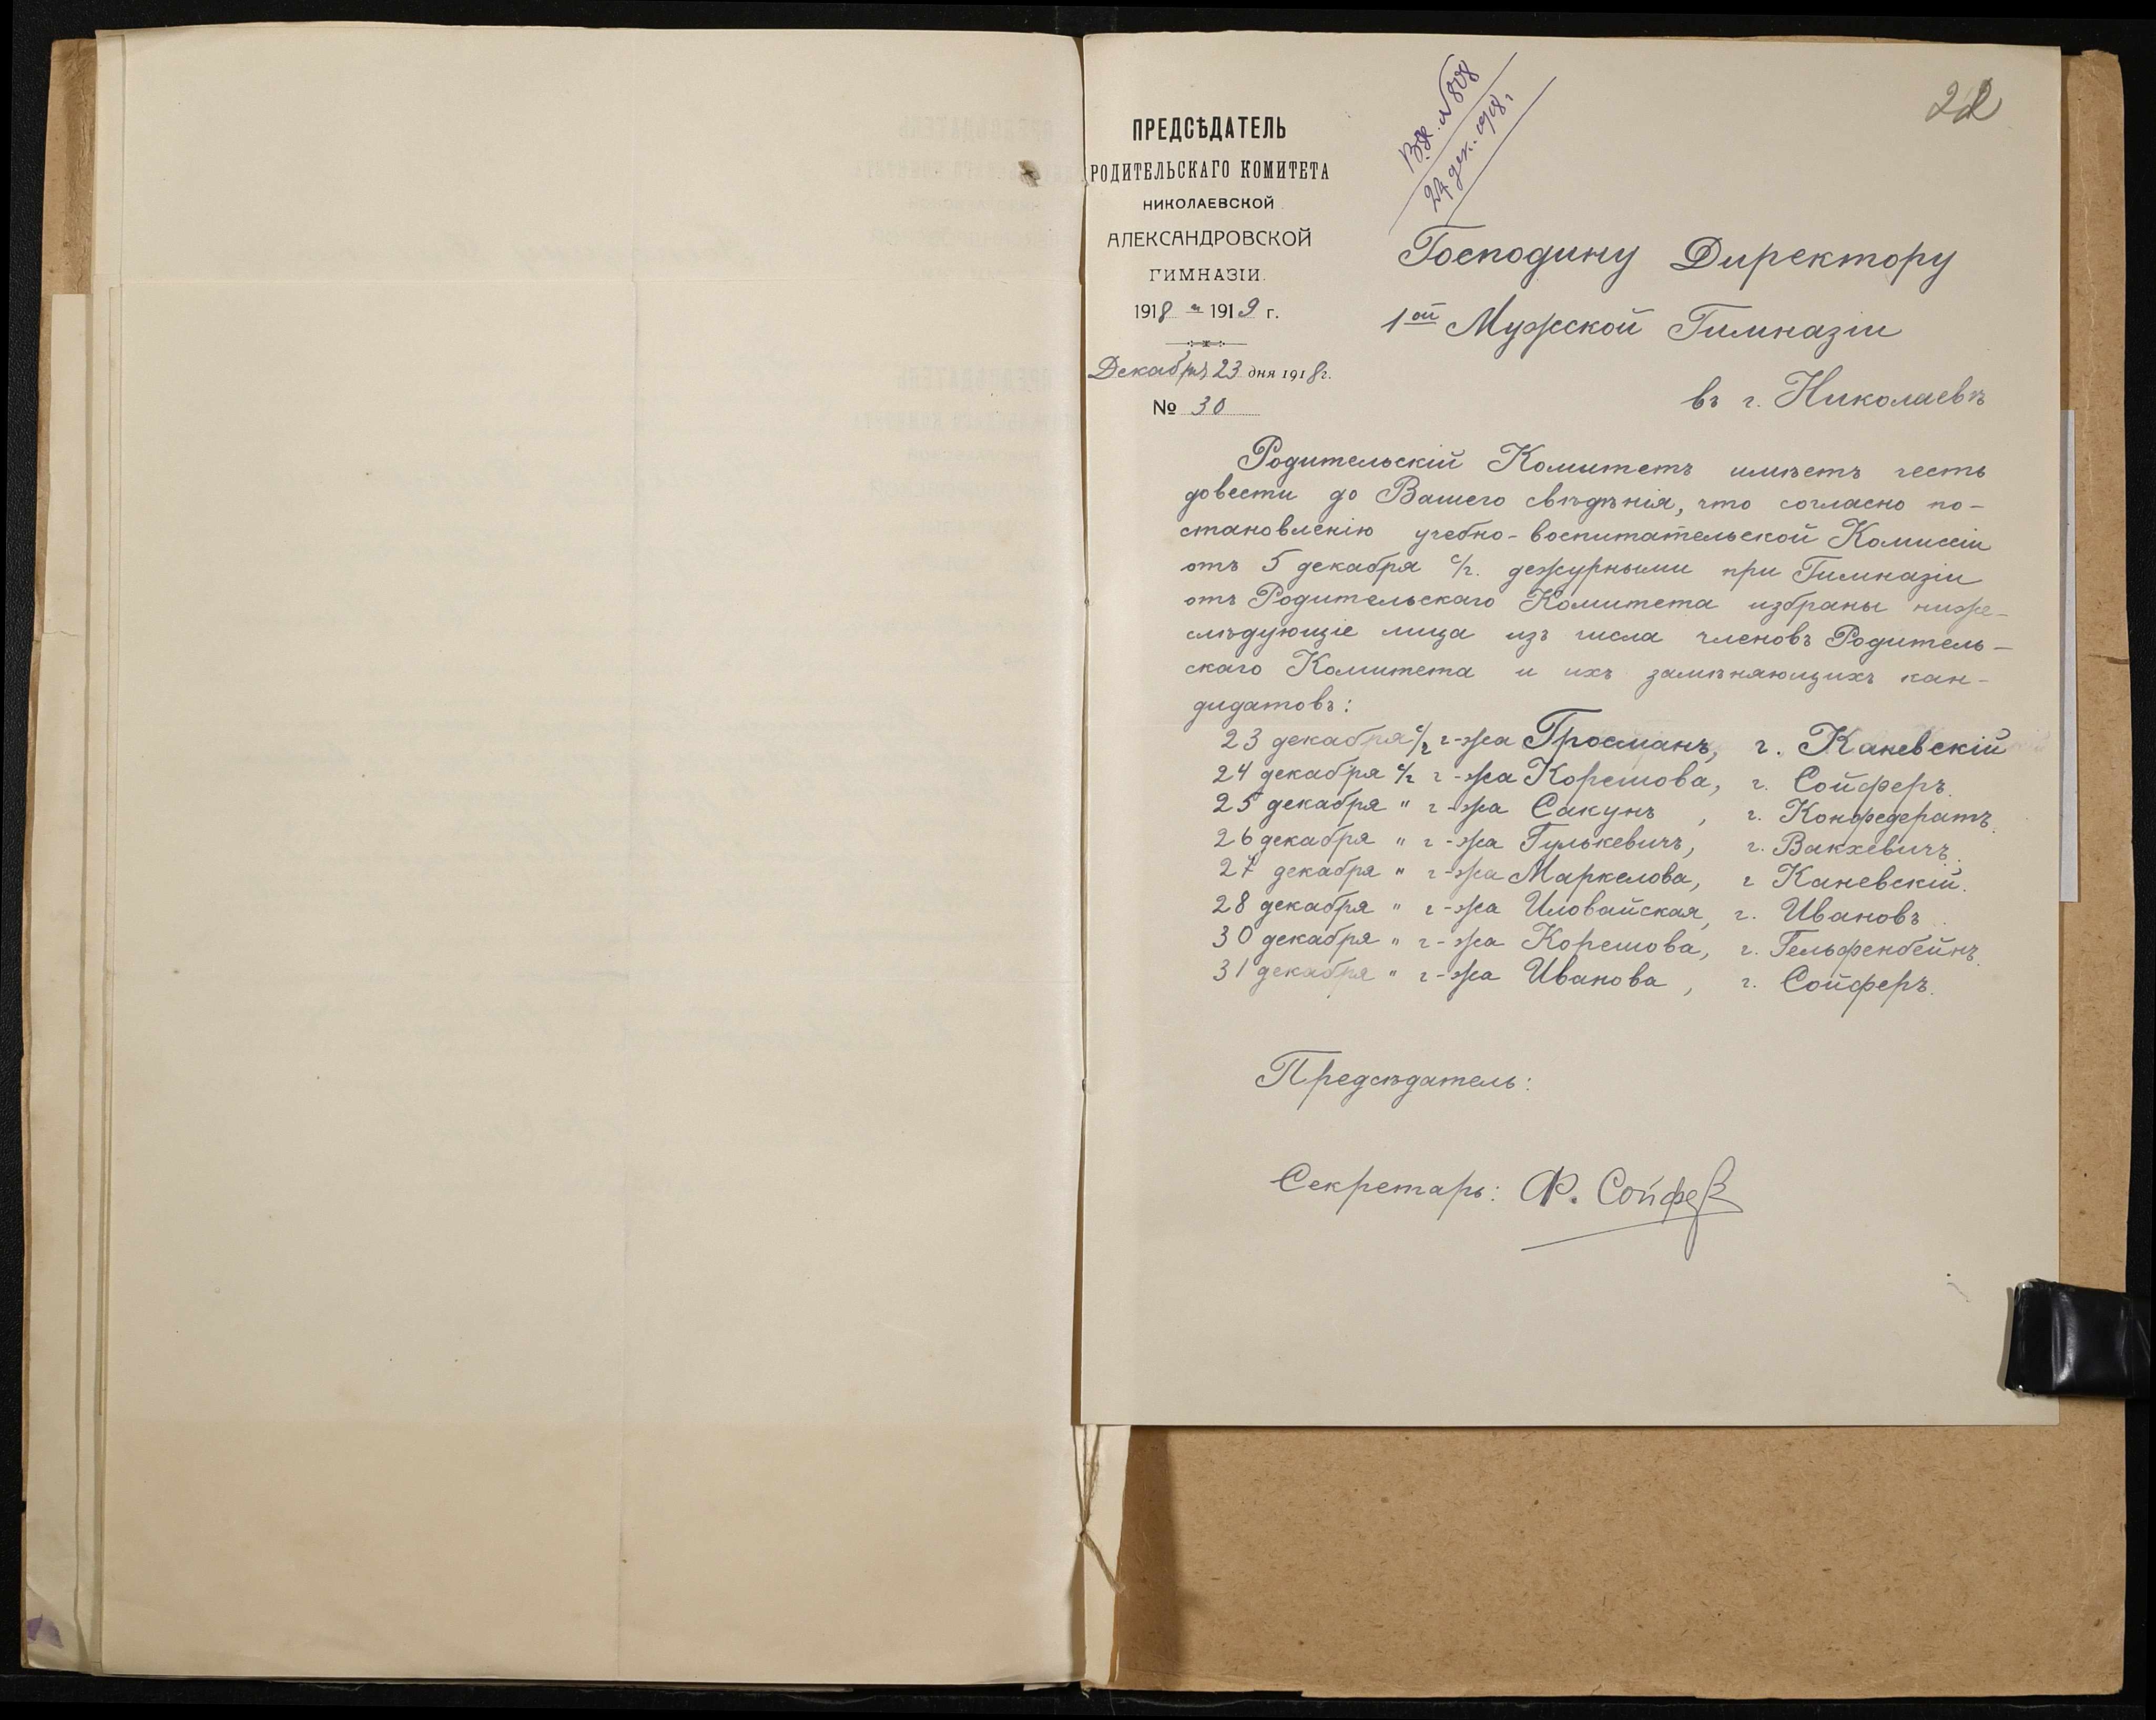 22
Вх. №808
24 дек. 1918 г
ПРЕДСѢДАТЕЛЬ
РОДИТЕЛЬСКАГО КОМИТЕТА
НИКОЛАЕВСКОЙ
АЛЕКСАНДРОВСКОЙ
ГИМНАЗІИ.
1918 – 1919 г.
Декабря 23 дня 1918 г.
№ 30
Господину Директору
1ой Мужской Гимназіи
въ г. Николаевѣ
Родительскій Комитетъ имѣетъ честь
довести до Вашего свѣдѣнія, что согласно по-
становленію учебно-воспитательской Комиссіи
отъ 5 декабря с/г. дежурными при Гимназіи
отъ Родительскаго Комитета избраны ниже-
слѣдующіе лица изъ числа членовъ Родитель-
скаго Комитета и ихъ замѣняющихъ кан-
дидатовъ:
23 декабря с/г г-жа Гросманъ, г. Каневскій
24 декабря с/г г-жа Корешова, г. Сойферъ.
25 декабря " г-жа Сакунъ , г. Конфедератъ.
26 декабря " г-жа Гулькевичъ, г. Вакхевичъ.
27 декабря " г-жа Маркелова, г Каневскій.
28 декабря " г-жа Иловайская, г. Ивановъ.
30 декабря " г-жа Корешова, г. Гельфенбейнъ.
31 декабря " г-жа Иванова , г. Сойферъ.
Предсѣдатель:
Секретарь: Ф. Сойфер